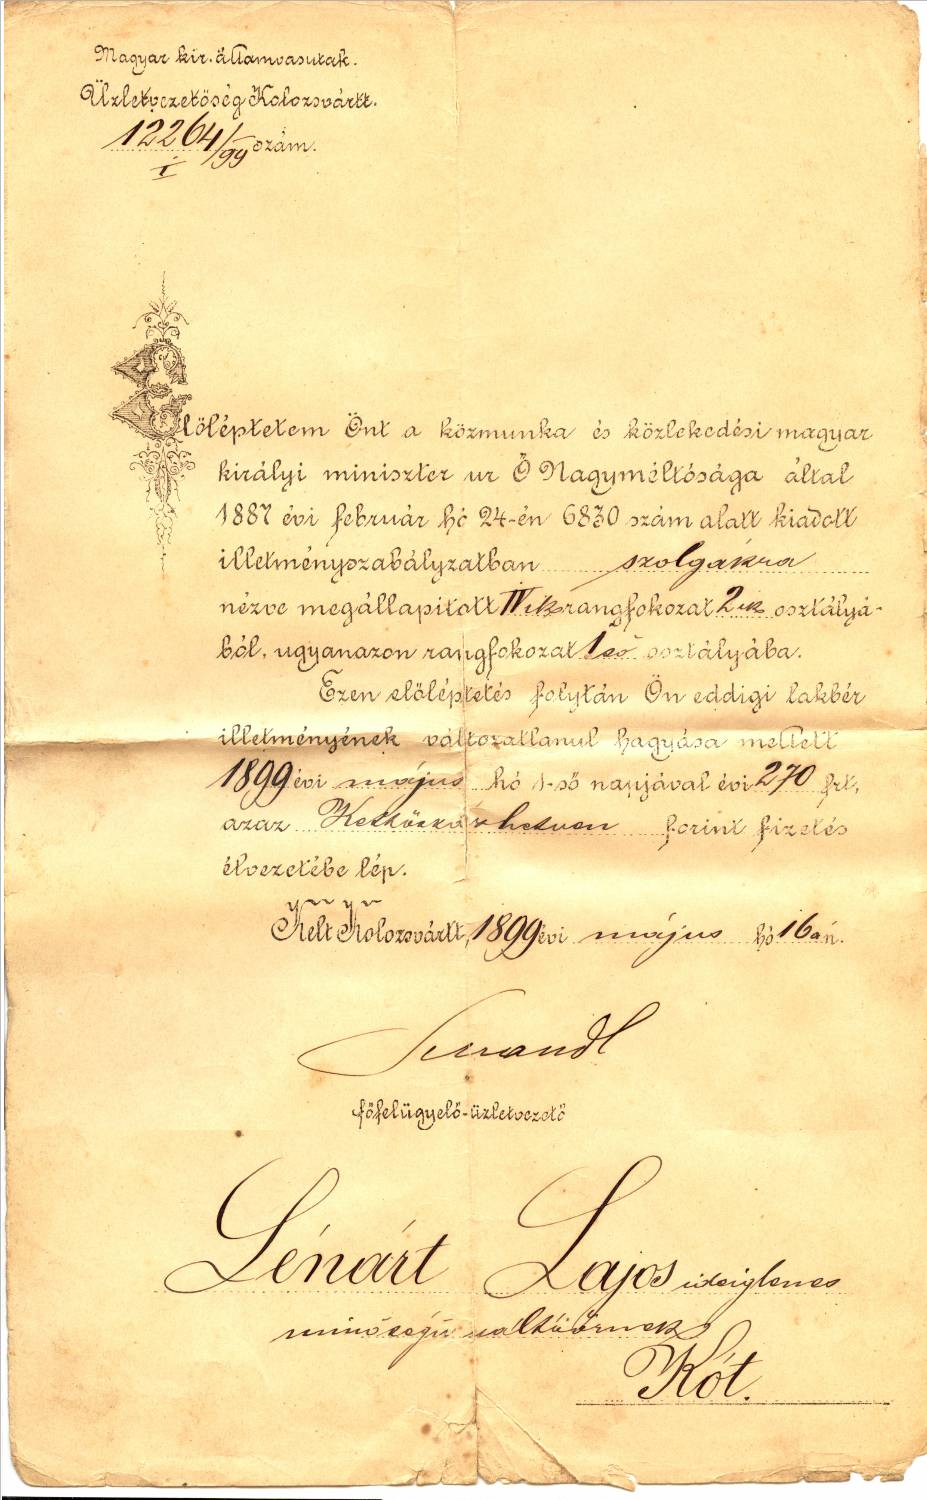 Magyar kir. államvasutak.
Üzletvezetőség Kolozsvártt.
12264/99 szám.
I
Előléptetem Önt a közmunka és közlekedési magyar
királyi miniszter ur Ő Nagyméltósága által
1887 évi február hó 24-én 6830 szám alatt kiadott
illetményszabályzatban szolgákra
nézve megállapitott IV ik rangfokozat 2 ik osztályá-
ból, ugyanazon rangfokozat 1 ső osztályába.
Ezen előléptetés folytán Ön eddigi lakbér
illetményének változatlanul hagyása mellett
1899 évi május hó 1-ső napjával évi 270 frt,
azaz Kettőszázhetven forint fizetés
élvezetébe lép.
Kelt Kolozsvártt, 1899 évi május hó 16 án.
főfelügyelő-üzletvezető
Lénárt Lajos ideiglenes
minőségű váltóőrnek
Kót.